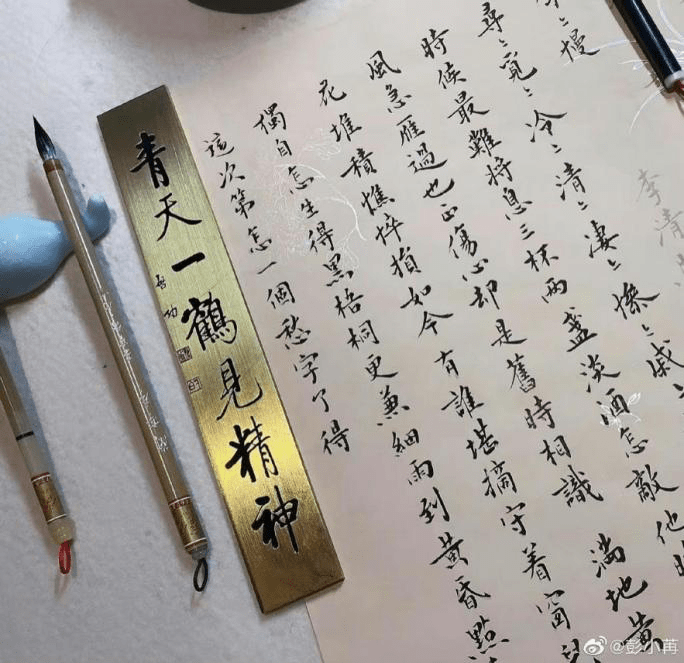 〻慢
李清
尋〻覓〻冷〻清〻凄〻慘〻戚
時候最難將息三杯兩盞淡酒怎敵他
風急雁過也正傷心却是舊時相識 滿地黃
花堆積憔悴損如今有誰堪摘守着窗
獨自怎生得黑梧桐更兼細雨到黃昏點
這次第怎一個愁字了得
青天一鶴見精神
啟功
@彭小苒